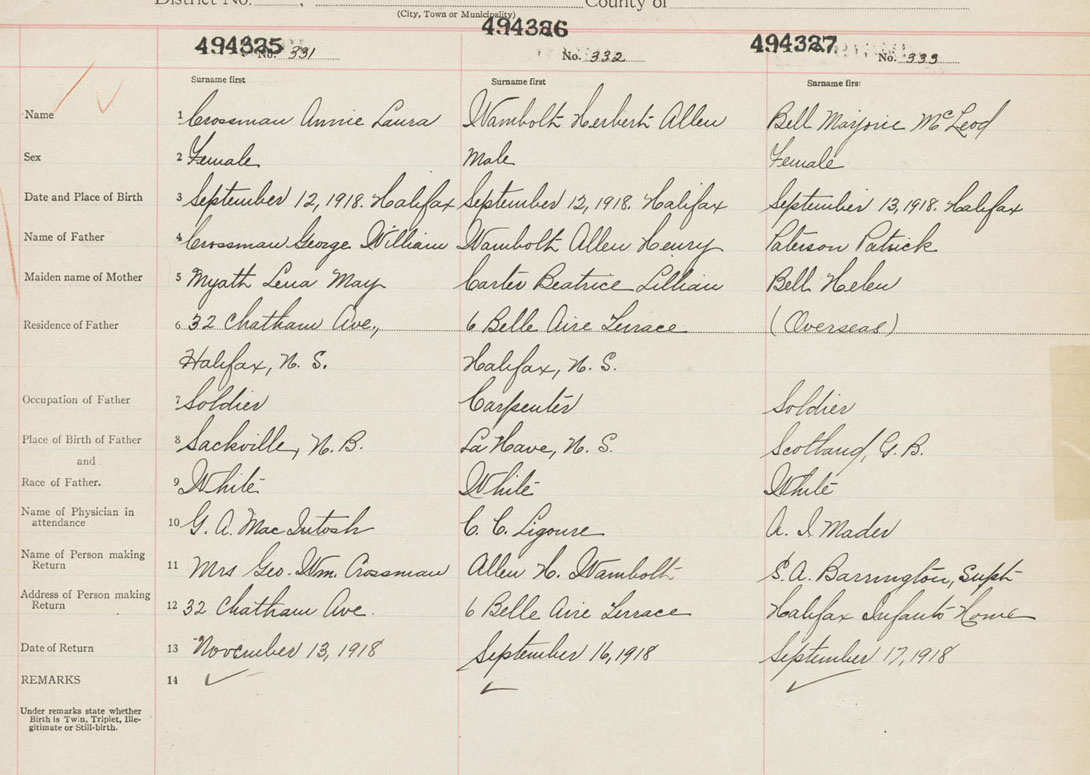 District No. , County of
(City, Town or Municipality)
494325 494326 494327
No. 331 No. 332 No. 333
Surname first Surname first Surname first
Name 1 Crossman Annie Laura Wambolt Herbert Allen Bell Marjorie McLeod
Sex 2 Female Male Female
Date and Place of Birth 3 September 12, 1918. Halifax September 12, 1918. Halifax September 13, 1918. Halifax
Name of Father 4 Crossman George William Wambolt Allen Henry Paterson Patrick
Maiden name of Mother 5 Myath Lena May Carter Beatrice Lillian Bell Helen
Residence of Father 6 32 Chatham Ave., 6 Belle Aire Terrace (Overseas)
Halifax, N. S. Halifax, N. S.
Occupation of Father 7 Soldier Carpenter Soldier
Place of Birth of Father 8 Sackville, N.B. La Have, N. S. Scotland, G. B.
and
Race of Father. 9 White White White
Name of Physician in
attendance 10 G. A. MacIntosh C. C. Ligoure A. I. Mader
Name of Person making
Return 11 Mrs Geo. Wm. Crossman Allen H. Wambolt S. A. Barrington, Supt
Address of Person making
Return 12 32 Chatham Ave. 6 Belle Aire Terrace Halifax Infants Home
Date of Return 13 November 13, 1918 September 16, 1918 September 17, 1918
REMARKS 14
Under remarks state whether
Birth is Twin, Triplet, Ille-
gitimate or Still-birth.